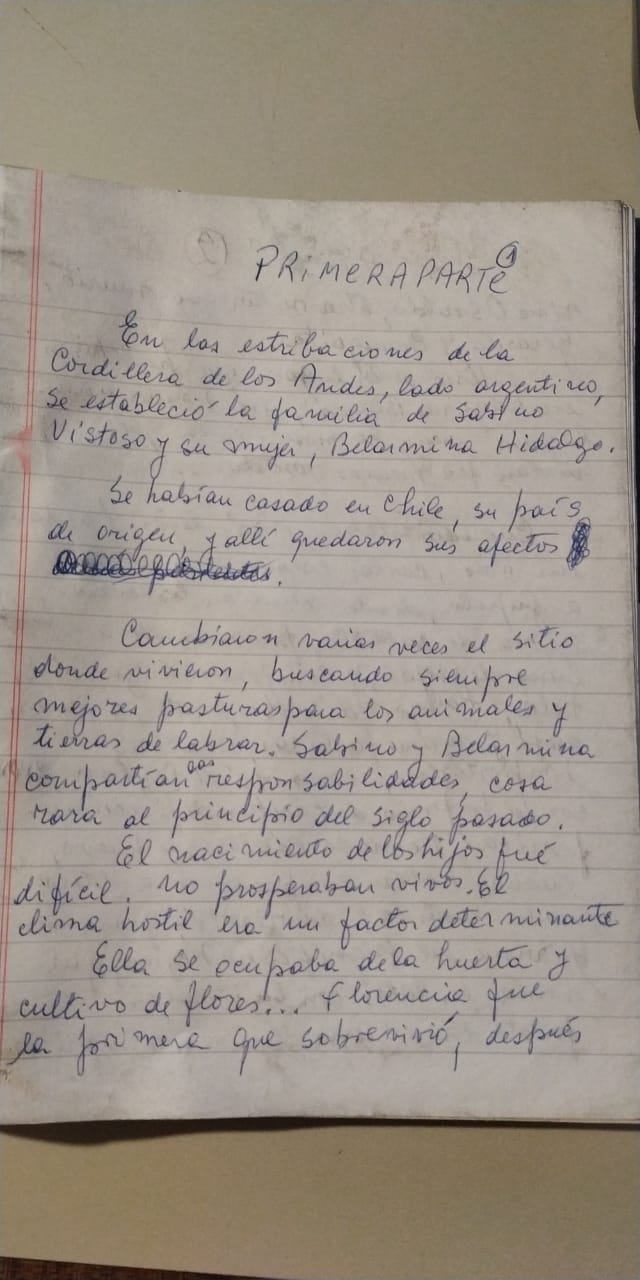 PRIMERA PARTE 1
En las estribaciones de la
Cordillera de los Andes, lado argentino,
se estableció la familia de Sabino
Vistoso y su mujer, Belarmina Hidalgo.
Se habían casado en Chile, su país
de origen, y allí quedaron sus afectos
.
Cambiaron varias veces el sitio
donde vivieron, buscando siempre
mejores pasturas para los animales y
tierras de labrar. Sabino y Belarmina
compartían las responsabilidades, cosa
rara al principio del siglo pasado.
El nacimiento de los hijos fué
difícil. No prosperaban vivos. El
clima hostil era un factor determinante
Ella se ocupaba de la huerta y
cultivo de flores... Florencia, fue
la primera que sobrevivió, después